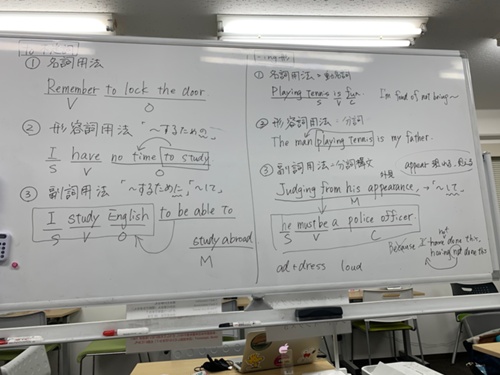 ① 名詞用法
Remember to lock the door
V O
② 形容詞用法 「〜するための」
I have no time to study
S V O
③ 副詞用法 「〜するために」「〜して」
I study English to be able to
S V O
study abroad
M
① 名詞用法 動名詞
Playing tennis is fun.
S V C
I'm fond of not being〜
② 形容詞用法 分詞
The man playing tennis is my father.
③ 副詞用法 分詞構文
appear
Judging from his appearance, 「〜して」
M
he must be a police officer
S V C
Because I have done this,
not
having not done this
ad+dress loud